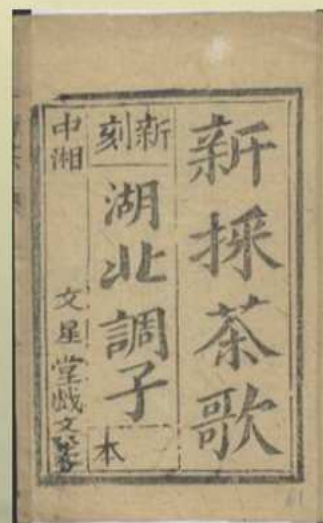 新採茶歌
新刻
湖北調子
本
中湘
文星堂戯文